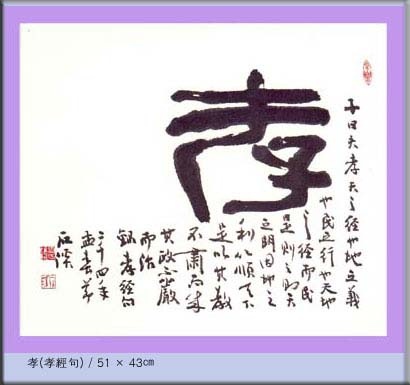 孝
子曰夫孝天之經也地之義
也民之行也天地
之經而民
是則之則天
之明因地之
利以順天下
是以其教
不肅而成
其政不嚴
而治
錄孝經句
二千四年
孟春節
石溪
孝(孝經句) / 51 × 43㎝